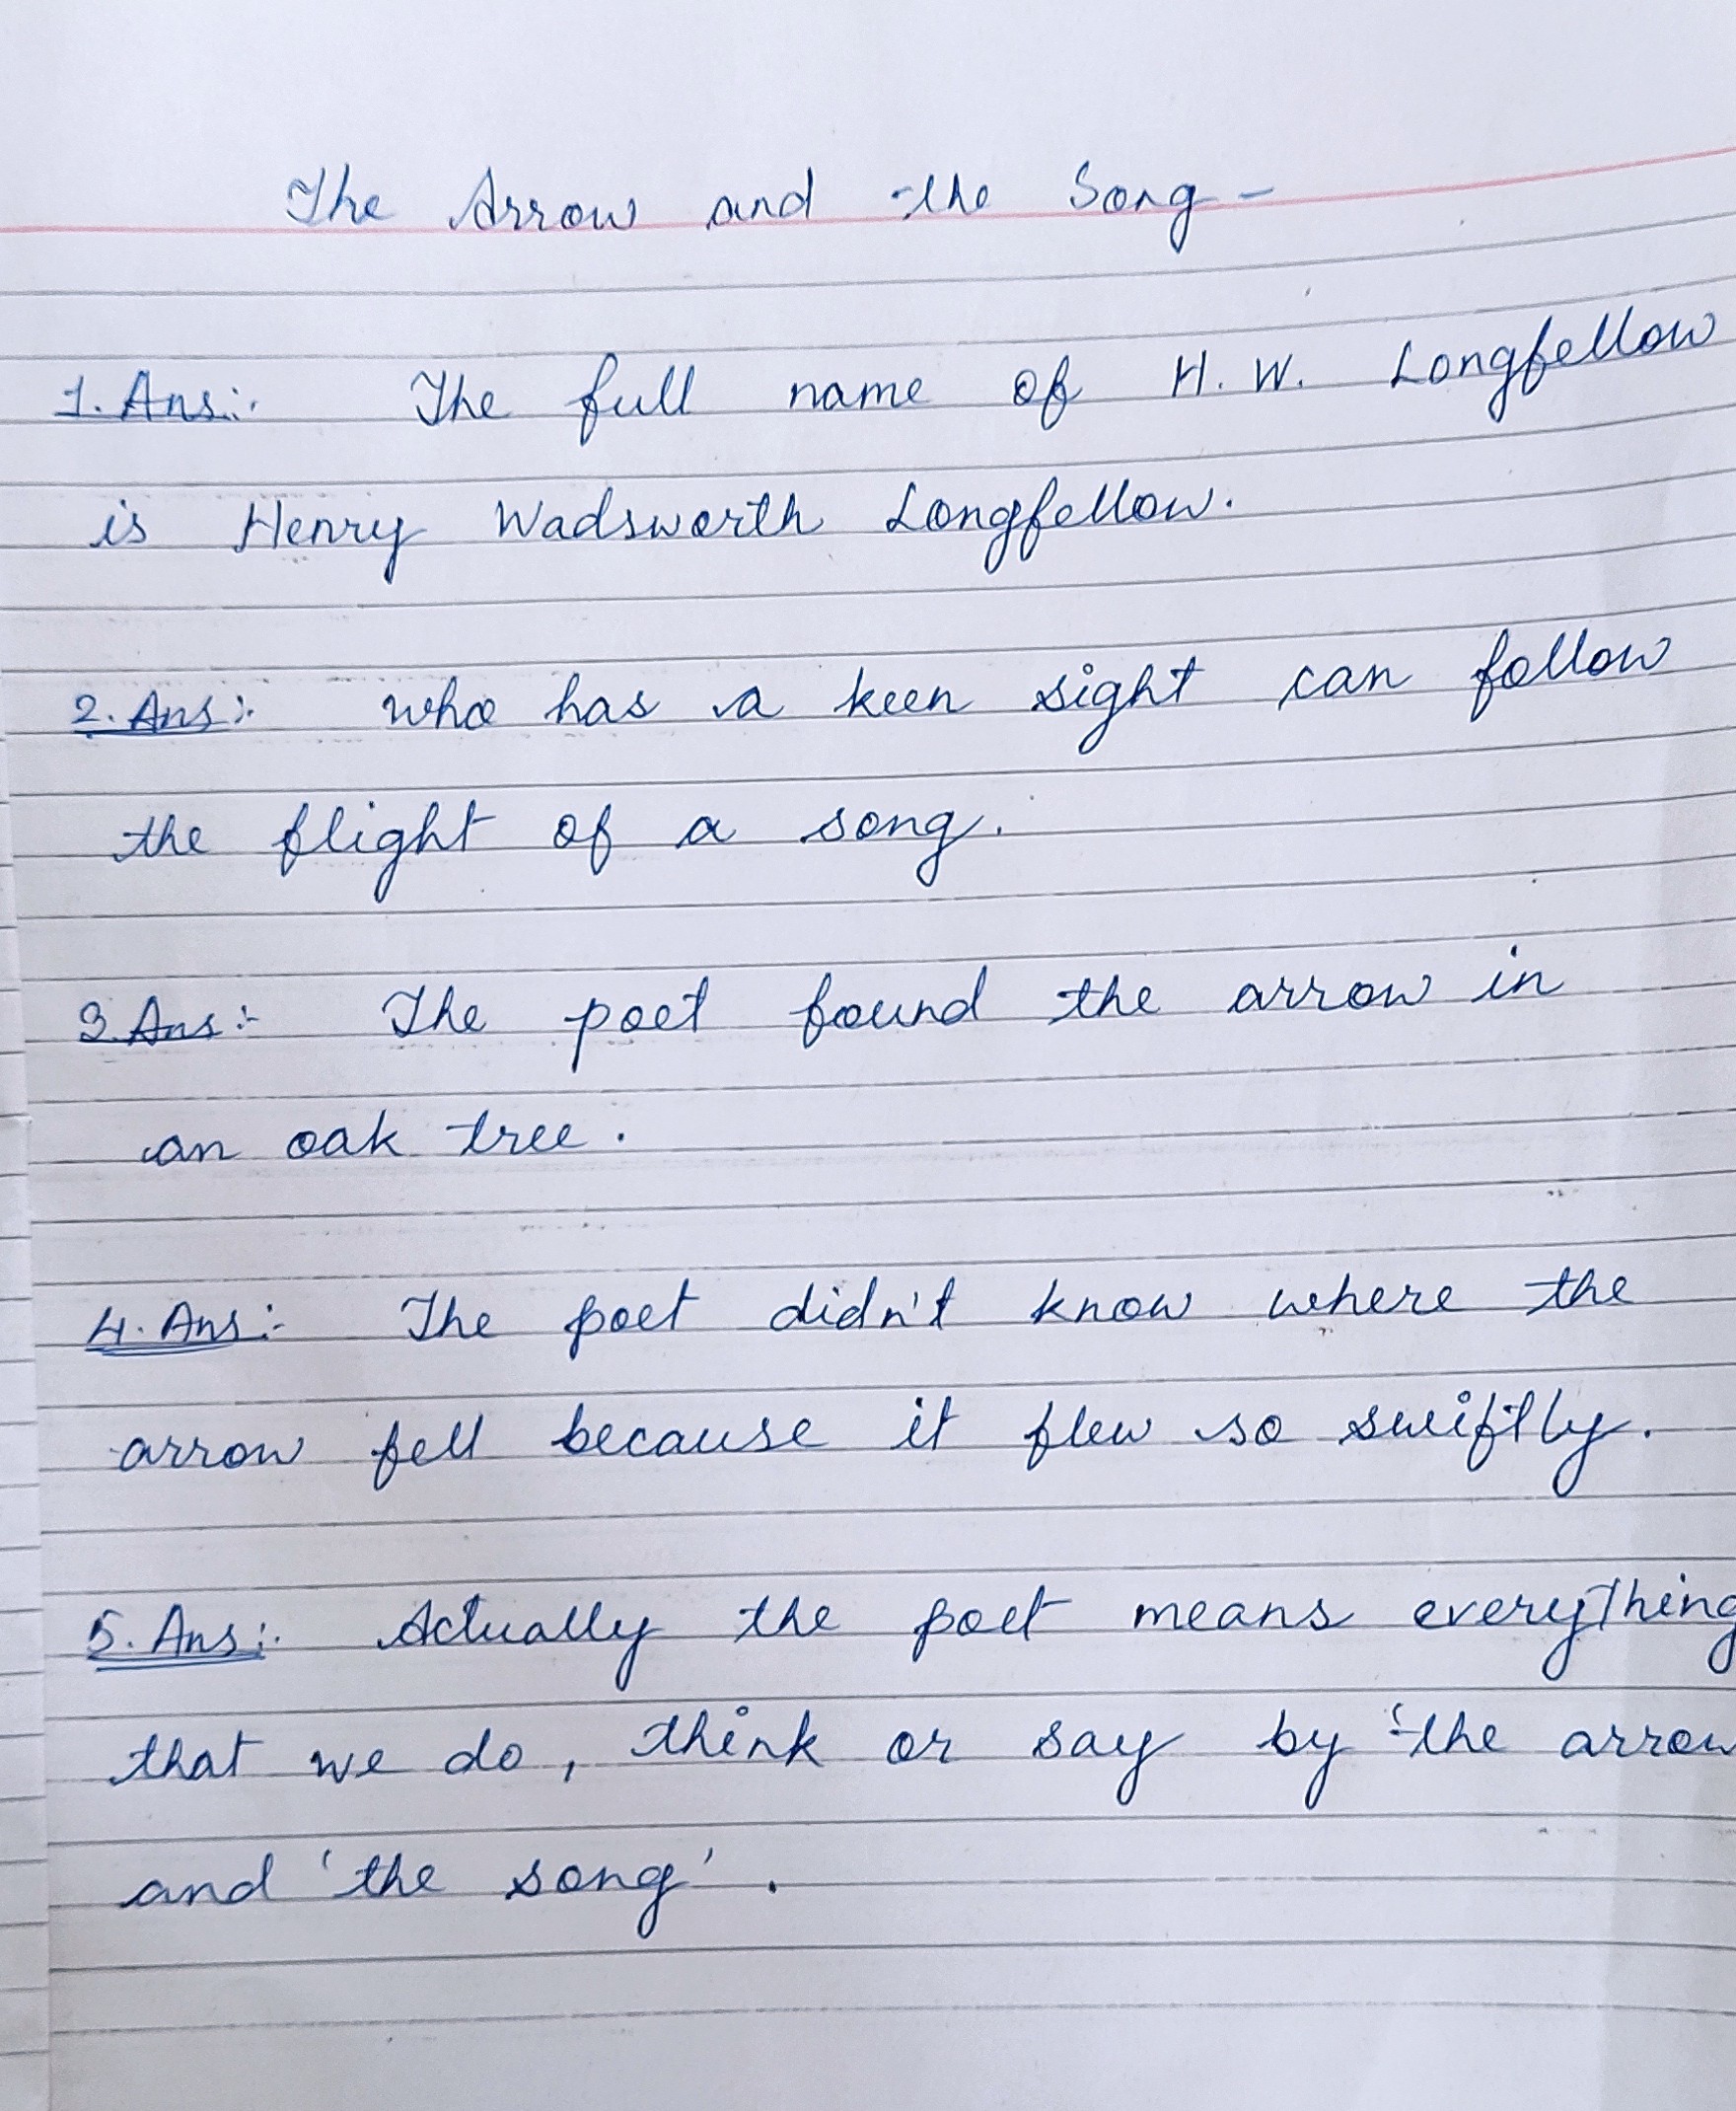 The Arrow and the Song -
1. Ans:- The full name of H. W. Longfellow
is Henry Wadsworth Longfellow.
2. Ans:- who has a keen sight can follow
the flight of a song.
3. Ans:- The poet found the arrow in
an oak tree.
4. Ans:- The poet didn't know where the
arrow fell because it flew so swiftly.
5. Ans:- Actually the poet means everything
that we do, think or say by 'the arrow
and 'the song'.